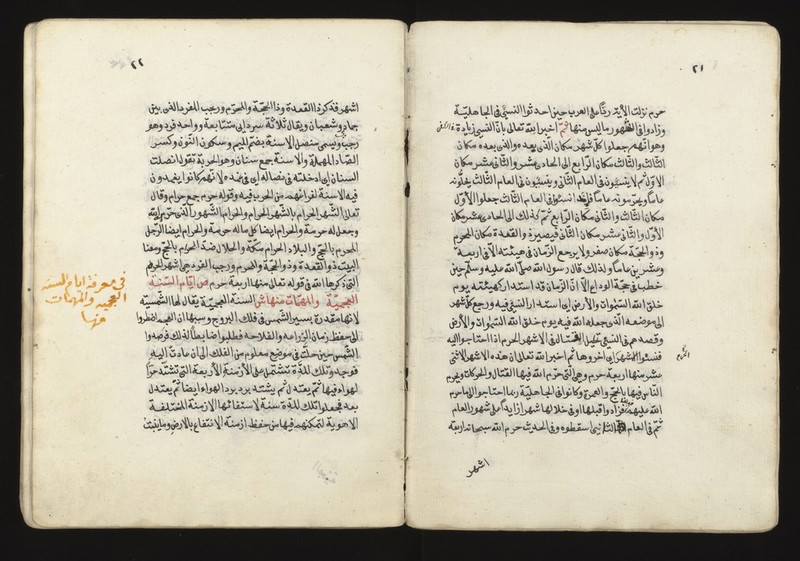 ٢١
حرم نزلت الآية ردًّا على العرب حين احدثوا النسئ فى الجاهلية
وزادوا فى الشهور ما ليس منها ثم اخبر الله تعالى بان النسئ زيادة فى الكفر
وهو انهم جعلوا كل شهر مكان الذى بعده والذى بعده مكان
الثالث والثالث مكان الرابع الى الحادى عشر والثانى عشر مكان
الاول ثم لا ينسئون فى العام الثانى وينسئون فى العام الثالث يحلونه
عاما ويحرمونه عاما انسئوا فى العام الثالث جعلوا الاول
مكان الثالث والثانى مكان الرابع ثم كذلك الى الحادى عشر مكان
الاول والثانى عشر مكان الثانى فيصير ذو القعدة مكان المحرم
وذو الحجة مكان صفر ولا يرجع الزمان فى هيئته الا فى اربعة
وعشرين عاما ولذلك قال رسول الله صلى الله عليه وسلم حين
خطب فى حجة الوداع الا ان الزمان قد استدار كهيئته يوم
خلق الله السموات والارض اى استدار النسئ فيه ورجع كل شهر
الى موضعه الذى جعله الله فيه يوم خلق الله السموات والارض
وقصدهم فى النسئ القتال فى الاشهر الحرم اذا احتاجوا اليه
فنسئوا الشهر اى اخروها ثم اخبر الله تعالى ان هذه الاشهر الاثنى
عشر منها اربعة حرم وهى التى حرم الله فيها القتال والحركات ويحرم
الناس فيها بالحج والعمرة وكانوا فى الجاهلية ربما احتاجوا الى ما حرم
الله عليهم فزادوا قبلها او فى خلالها شهرا زايدا على شهور العام
ثم فى العام الثانى اسقطوه وفى الحديث حرم الله سبحانه اربعة
اشهر
٢٢
اشهر فذكر ذا القعدة وذا الحجة والمحرم ورجب المفرد الذى بين
جمادى وشعبان ويقال ثلاثة سرد اى متتابعة وواحد فرد وهو
رجب ويسمى منصل الاسنة بضم الميم وسكون النون وكسر
الصاد المهملة والاسنة جمع سنان وهو الحربة تقول انصلت
السنان اى ادخلته فى نصاله اى فى غمده لانهم كانوا يغمدون
فيه الاسنة لفراغهم من الحرب فيه وقوله حرم جمع حرام وقال
تعالى الشهر الحرام بالشهر الحرام والحرام الشهور التى حرم الله
وجعل له حرمة والحرام ايضا كل ماله حرمة والحرام ايضا الرجل
المحرم بالحج والبلاد الحرام مكة والحلال ضد المحرم بالحج ومعنا
البيت ذو القعدة وذو الحجة والمحرم ورجب الفرد هى اشهر الحرم
التى ذكرها الله فى قوله تعالى منها اربعة حرم ص ايام السنة
العجمية والمهمات منها ش السنة العجمية يقال لها الشمسية
لانها مقدرة بسير الشمس فى فلك البروج وسببها ان العجم اضطروا
الى حفظ زمان الزراعة والفلاحة فطلبوا ضابطا لذلك فرصدوا
الشمس حين حلت فى موضع معلوم من الفلك الى ان عادت اليه
فوجدوا تلك المدة تشتمل على الازمنة الاربعة التى تشتد حرا
الهواء فيها ثم يعتدل ثم يشتد برد الهواء ايضا ثم يعتدل
بعد فجعلوا تلك المدة سنة لاستيفائها الازمنة المختلفة
الاهوية لتمكنهم فيها من حفظ ازمنة الانتفاع بالارض وما ينبت
فى معرفة ايام السنة
العجمية والمهمات
منها